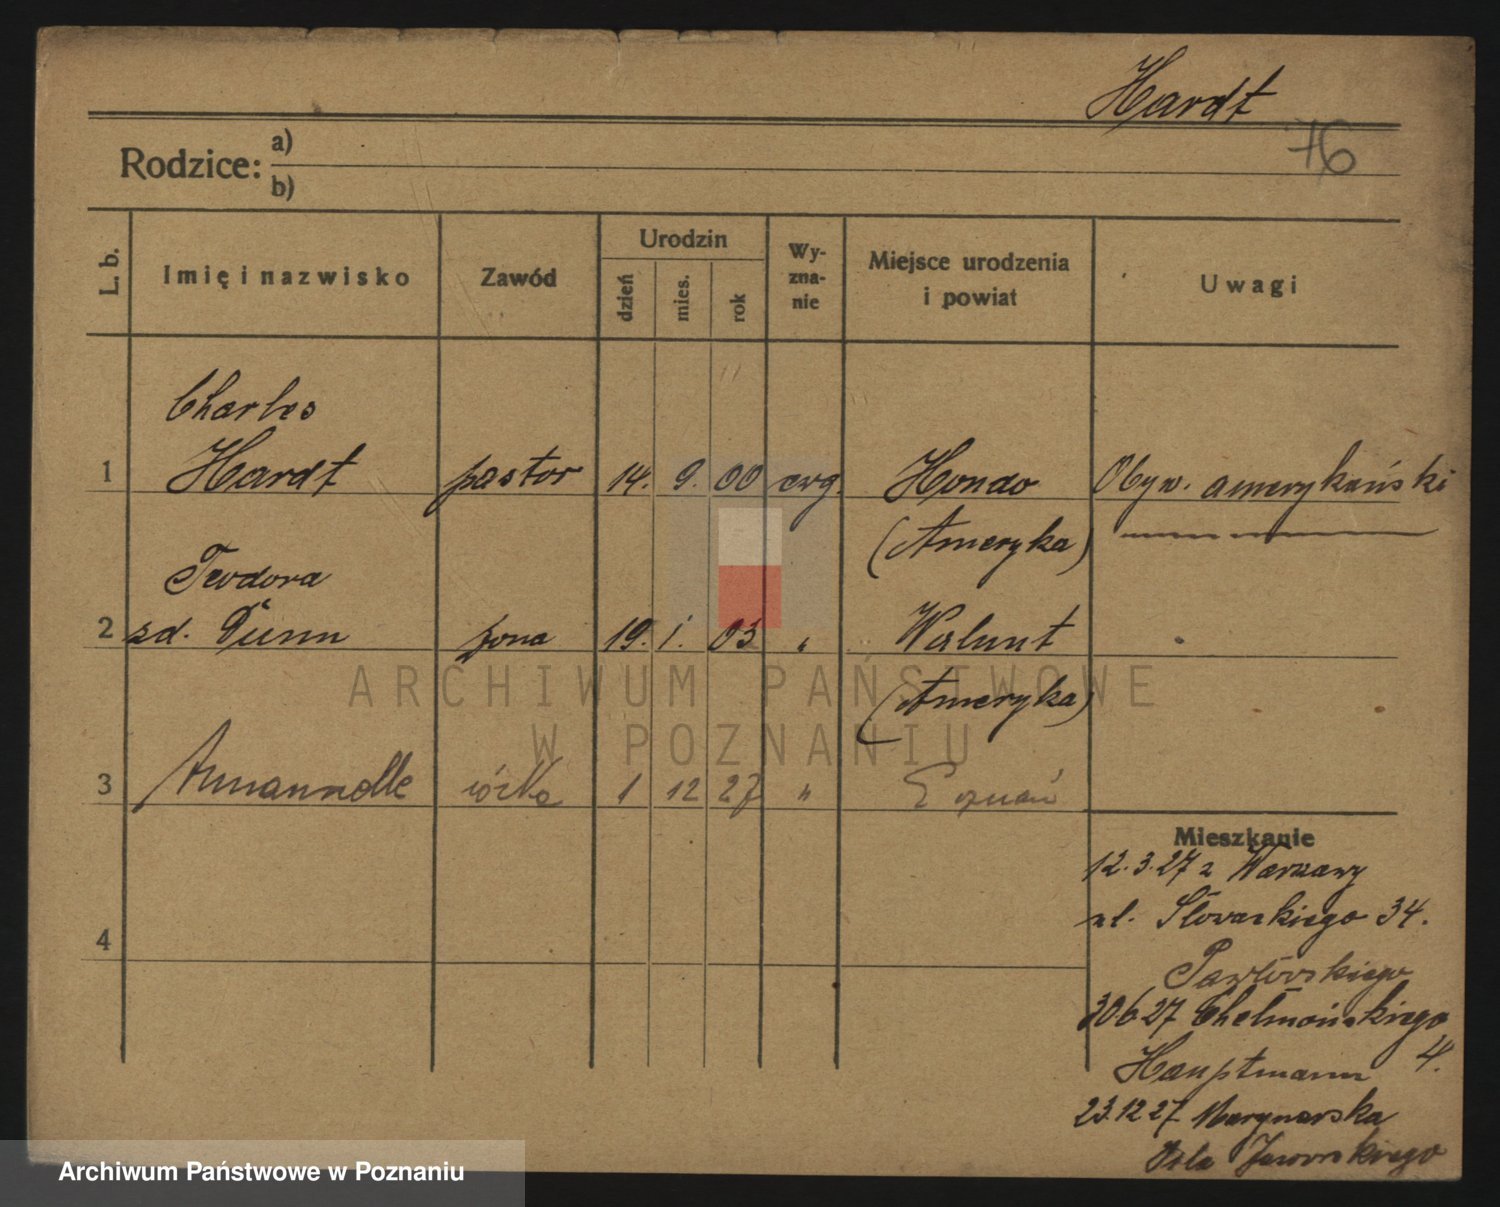 Hardt
76
Rodzice: a)
b)
L. b.
Imię i nazwisko
Zawód
Urodzin
dzień
mies.
rok
Wy-
zna-
nie
Miejsce urodzenia
i powiat
Uwagi
Charles
1 Hardt pastor 14. 9. 00 ewg. Hondo Obyw. amerykański
(Ameryka)
Teodora
2 zd. Dünn żona 19. 1. 03 " Walnut
(Ameryka)
3 córka 1 12 27 " Poznań
4
Mieszkanie
12.3.27 z Warszawy
ul. Słowackiego 34.
Pawłowskiego
30 6 27 Chełmońskiego
4.
Hauptmann
23.12 27 Marynarska
ARCHIWUM PAŃSTWOWE
W POZNANIU
Archiwum Państwowe w Poznaniu